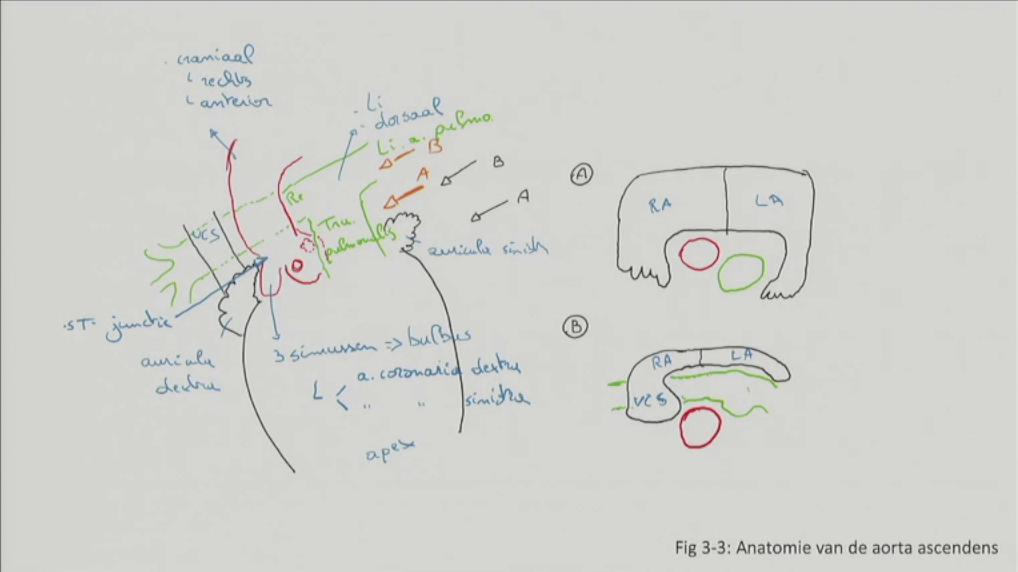 craniaal
rechts
anterior
Li
dorsaal
Li. a. pulmo.
B
A
B
A
Re
Tru.
pulmonalis
VCS
auricula sinistr
ST- junctie
auricula
dextra
3 sinussen => bulbus
L < a. coronaria dextra
" " sinistra
apex
A
RA
LA
B
RA
LA
VCS
Fig 3-3: Anatomie van de aorta ascendens